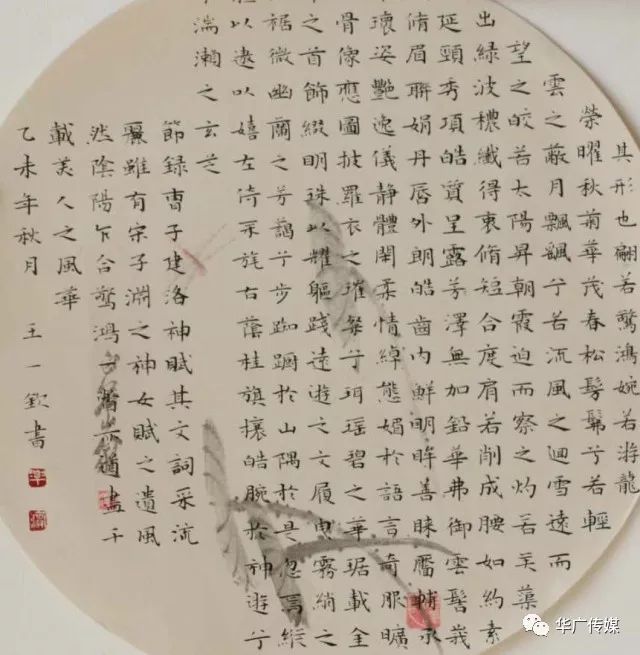 其形也翩若驚鴻婉若游龍
榮曜秋菊華茂春松髣髴兮若輕
雲之蔽月飄颻兮若流風之迴雪遠而
望之皎若太陽昇朝霞迫而察之灼若芙蕖
出綠波穠纖得衷脩短合度肩若削成腰如約素
延頸秀項皓質呈露芳澤無加鉛華弗御雲髻峩
脩眉聯娟丹唇外朗皓齒内鮮明眸善睞靨輔承
瓌姿艷逸儀静體閑柔情綽態媚於語言奇服曠
骨像應圖披羅衣之璀粲兮珥瑶碧之華琚戴金
之首飾綴明珠以耀軀踐遠遊之文履曳霧綃之
裾微幽蘭之芳藹兮步踟躕於山隅於是忽焉縱
以遨以嬉左倚采旄右蔭桂旗攘皓腕於神遊兮
湍瀨之玄芝
節録曹子建洛神賦其文詞采流
麗雖有宋子淵之神女賦之遺風
然陰陽乍合驚鴻一瞥亦道盡千
載美人之風華
乙未年秋月 王一欽書
华广传媒